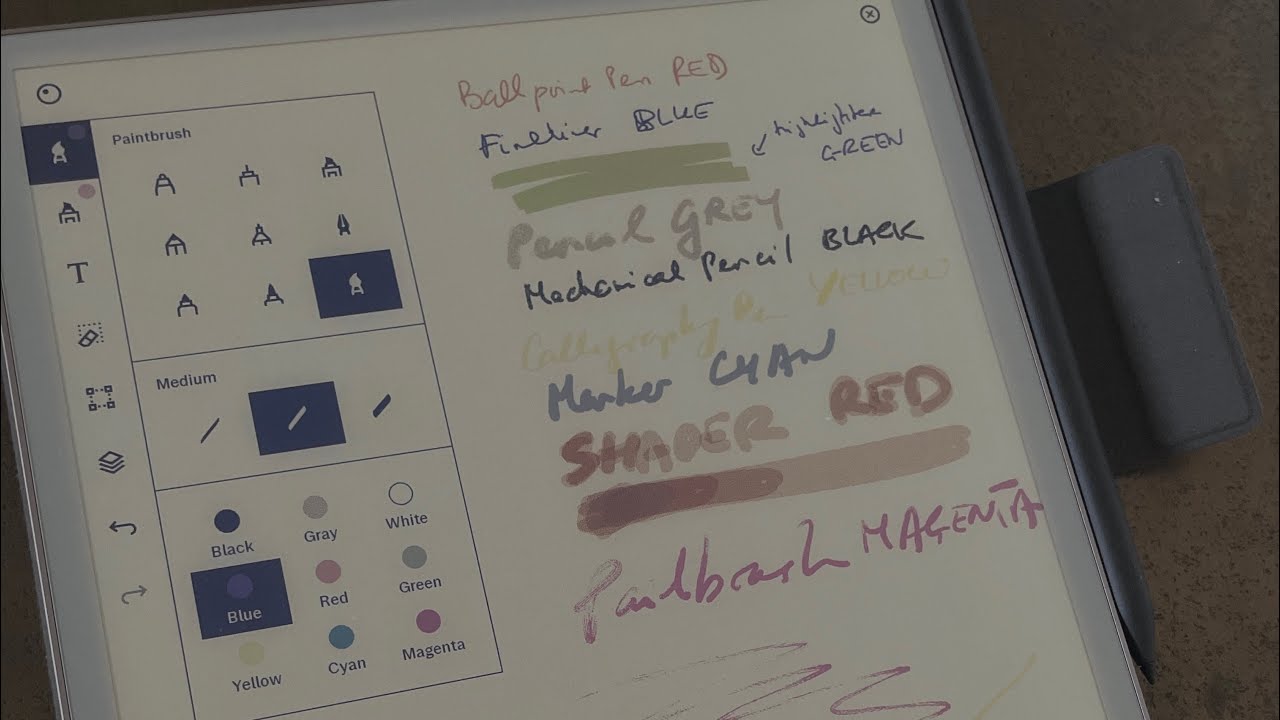 Paintbrush
T
Medium
Black
Gray
White
Blue
Red
Green
Yellow
Cyan
Magenta
Ballpoint Pen RED
Fineliner BLUE
highlighter
GREEN
Pencil GREY
Mechanical Pencil BLACK
Calligraphy Pen YELLOW
Marker CYAN
SHADER RED
Paintbrush MAGENTA